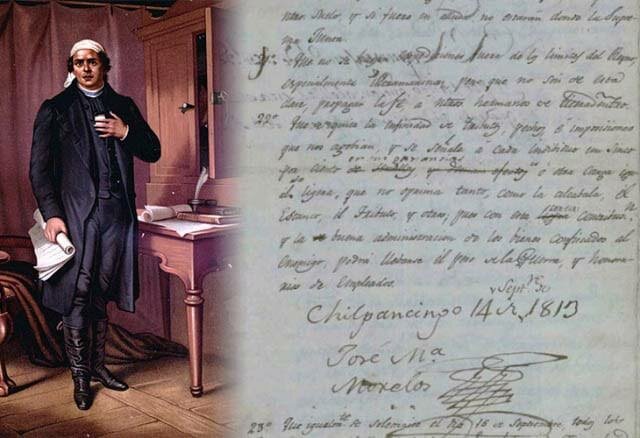 ntro. Suelo, y si fuere en ayuda no estarán donde la Supre-
ma Junta.
21º Que no se hagan expediciones fuera de los limites del Reyno,
especialmente Ultramarinas, pero que no son de esta
clase propagar la fé a ntros hermanos de tierradentro.
22º Que se quite la infinidad de tributos, pechos é imposiciones
que nos agobian, y se señale a cada individuo un cinco
por ciento en sus ganancias ú otra carga igual
ligera, que no oprima tanto, como la alcabala, el
Estanco, el Tributo, y otros, pues con esta corta contribución
y la buena administracion de los bienes confiscados al
Enemigo, podrá llebarse el peso de la Guerra, y honora-
rios de Empleados.
Chilpancingo 14 de Septre. 1813
José Mª
Morelos
23º Que igualmte. se solemnice el dia 16 de Septiembre, todos los